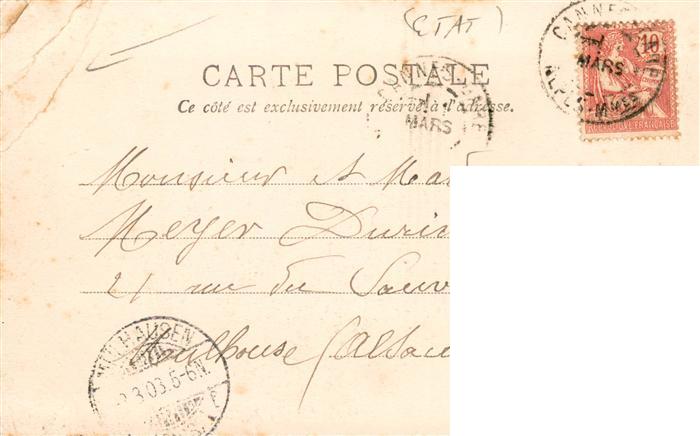 (ETAT)
CARTE POSTALE
Ce côté est exclusivement réservé à l'adresse.
CANNES
MARS
ALPES-Mmes
10
RÉPUBLIQUE FRANÇAISE
CANNES
MARS
Monsieur et Ma
Meyer
21 rue du Sauv
Mulhouse (Alsac
HAUSEN
3.03.5-6N.